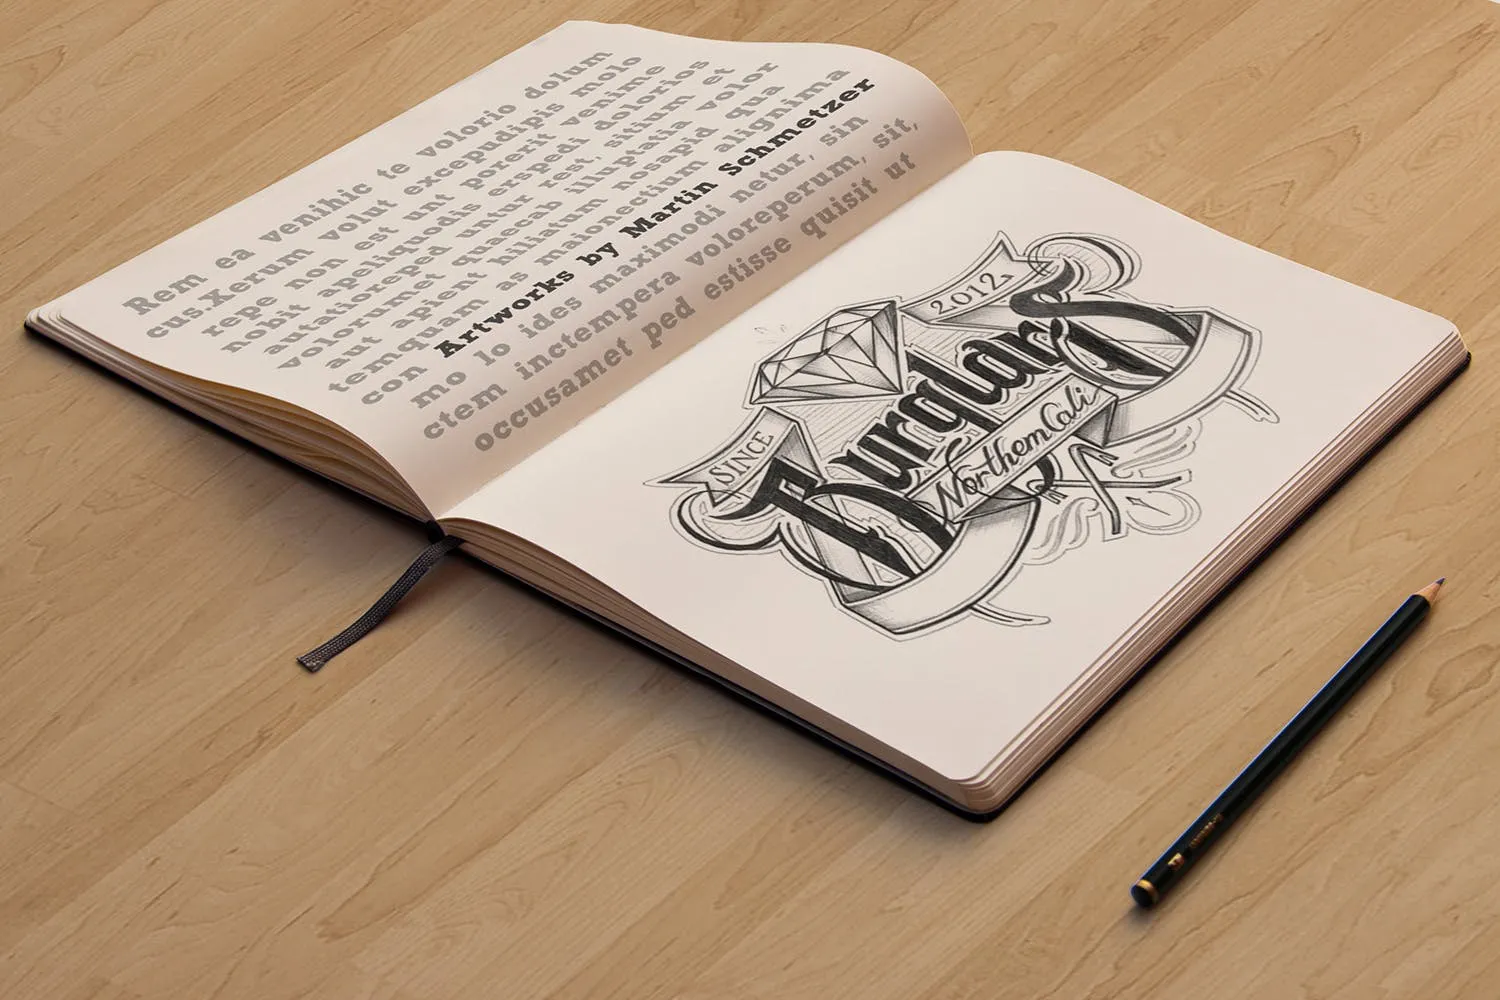 Rem ea venihic te volorio dolum
cus.Xerum volut excepudipis molo
repe non est unt porerit venime
nobit apeliquodis erspedi dolorios
autatioreped untur rest, sitium et
volorumet quaecab illuptatia volor
aut apient hiliatum nosapid qua
temquam as maionectium alignima
con Artworks by Martin Schmetzer
mo lo ides maximodi netur, sin
ctem inctempera voloreperum, sit,
occusamet ped estisse quisit ut
SINCE 2012
Burglars
Northern Cali